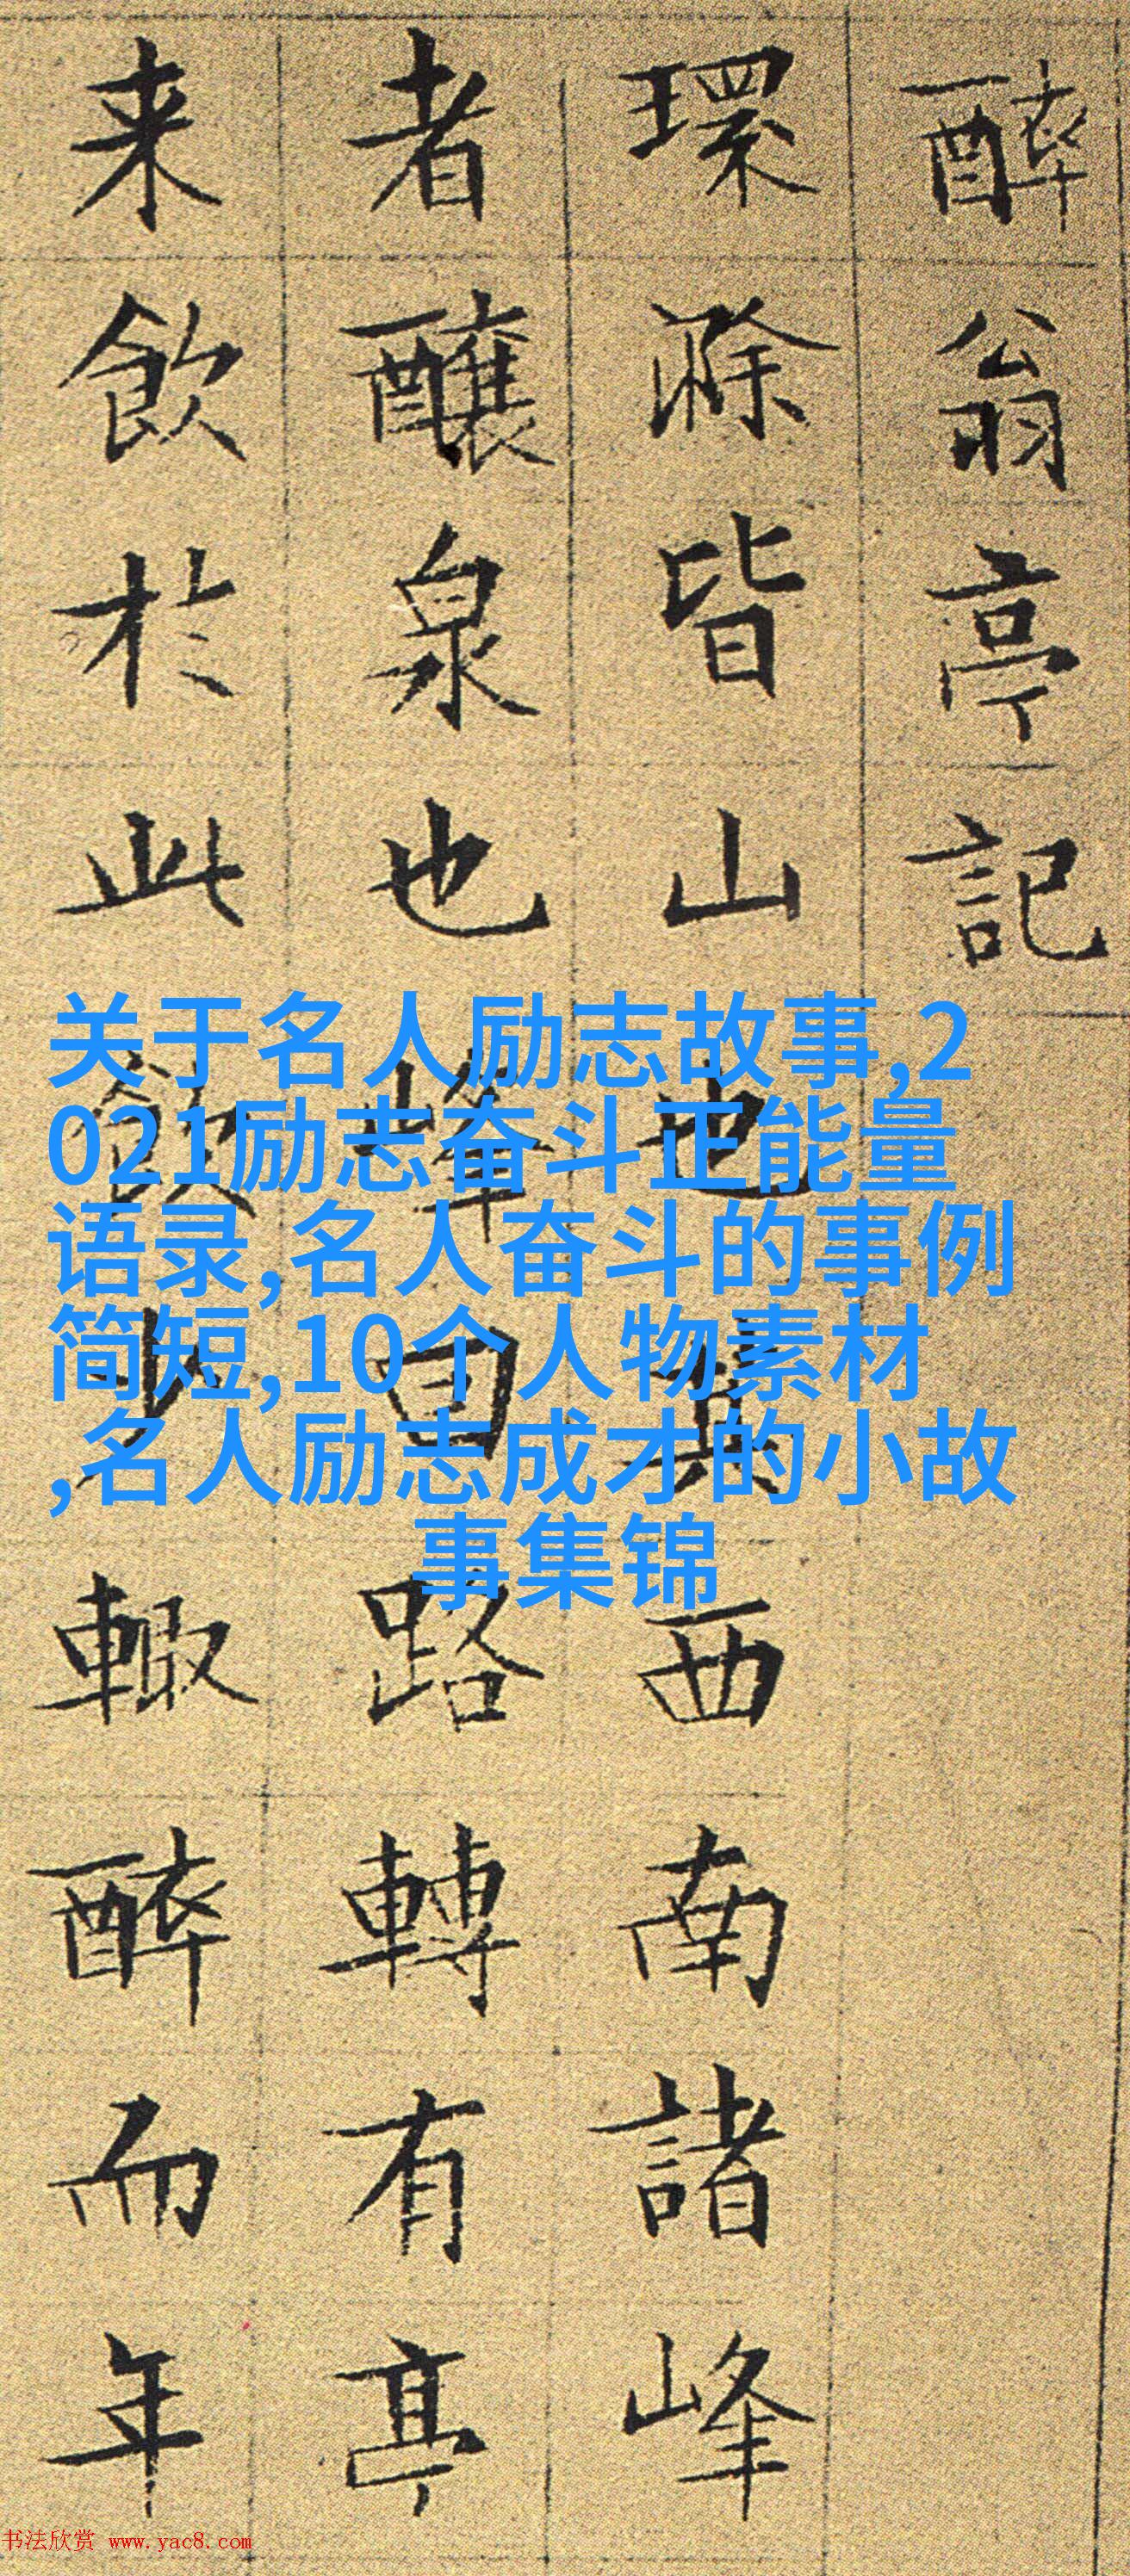 醉翁亭記
環滁皆山也其西南諸峰
者釀泉也峰回路轉有亭
来飲於此飲少輒醉而年
关于名人励志故事,2
021励志奋斗正能量
语录,名人奋斗的事例
简短,10个人物素材
,名人励志成才的小故
事集锦
书法欣赏 www.yac8.com